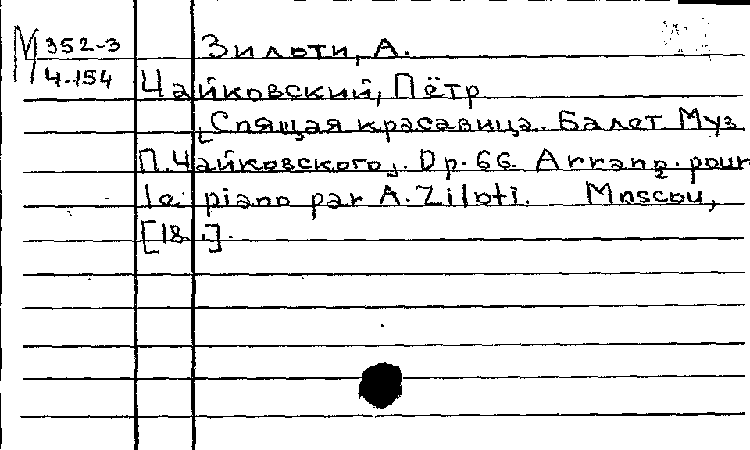 М 352-3 Зилоти, А.
4.154 Чайковский, Пётр
[Спящая красавица. Балет Муз
П. Чайковского]. Op. 66. Arrang. pour
le piano par A. Ziloti. Moscou,
[18. .].